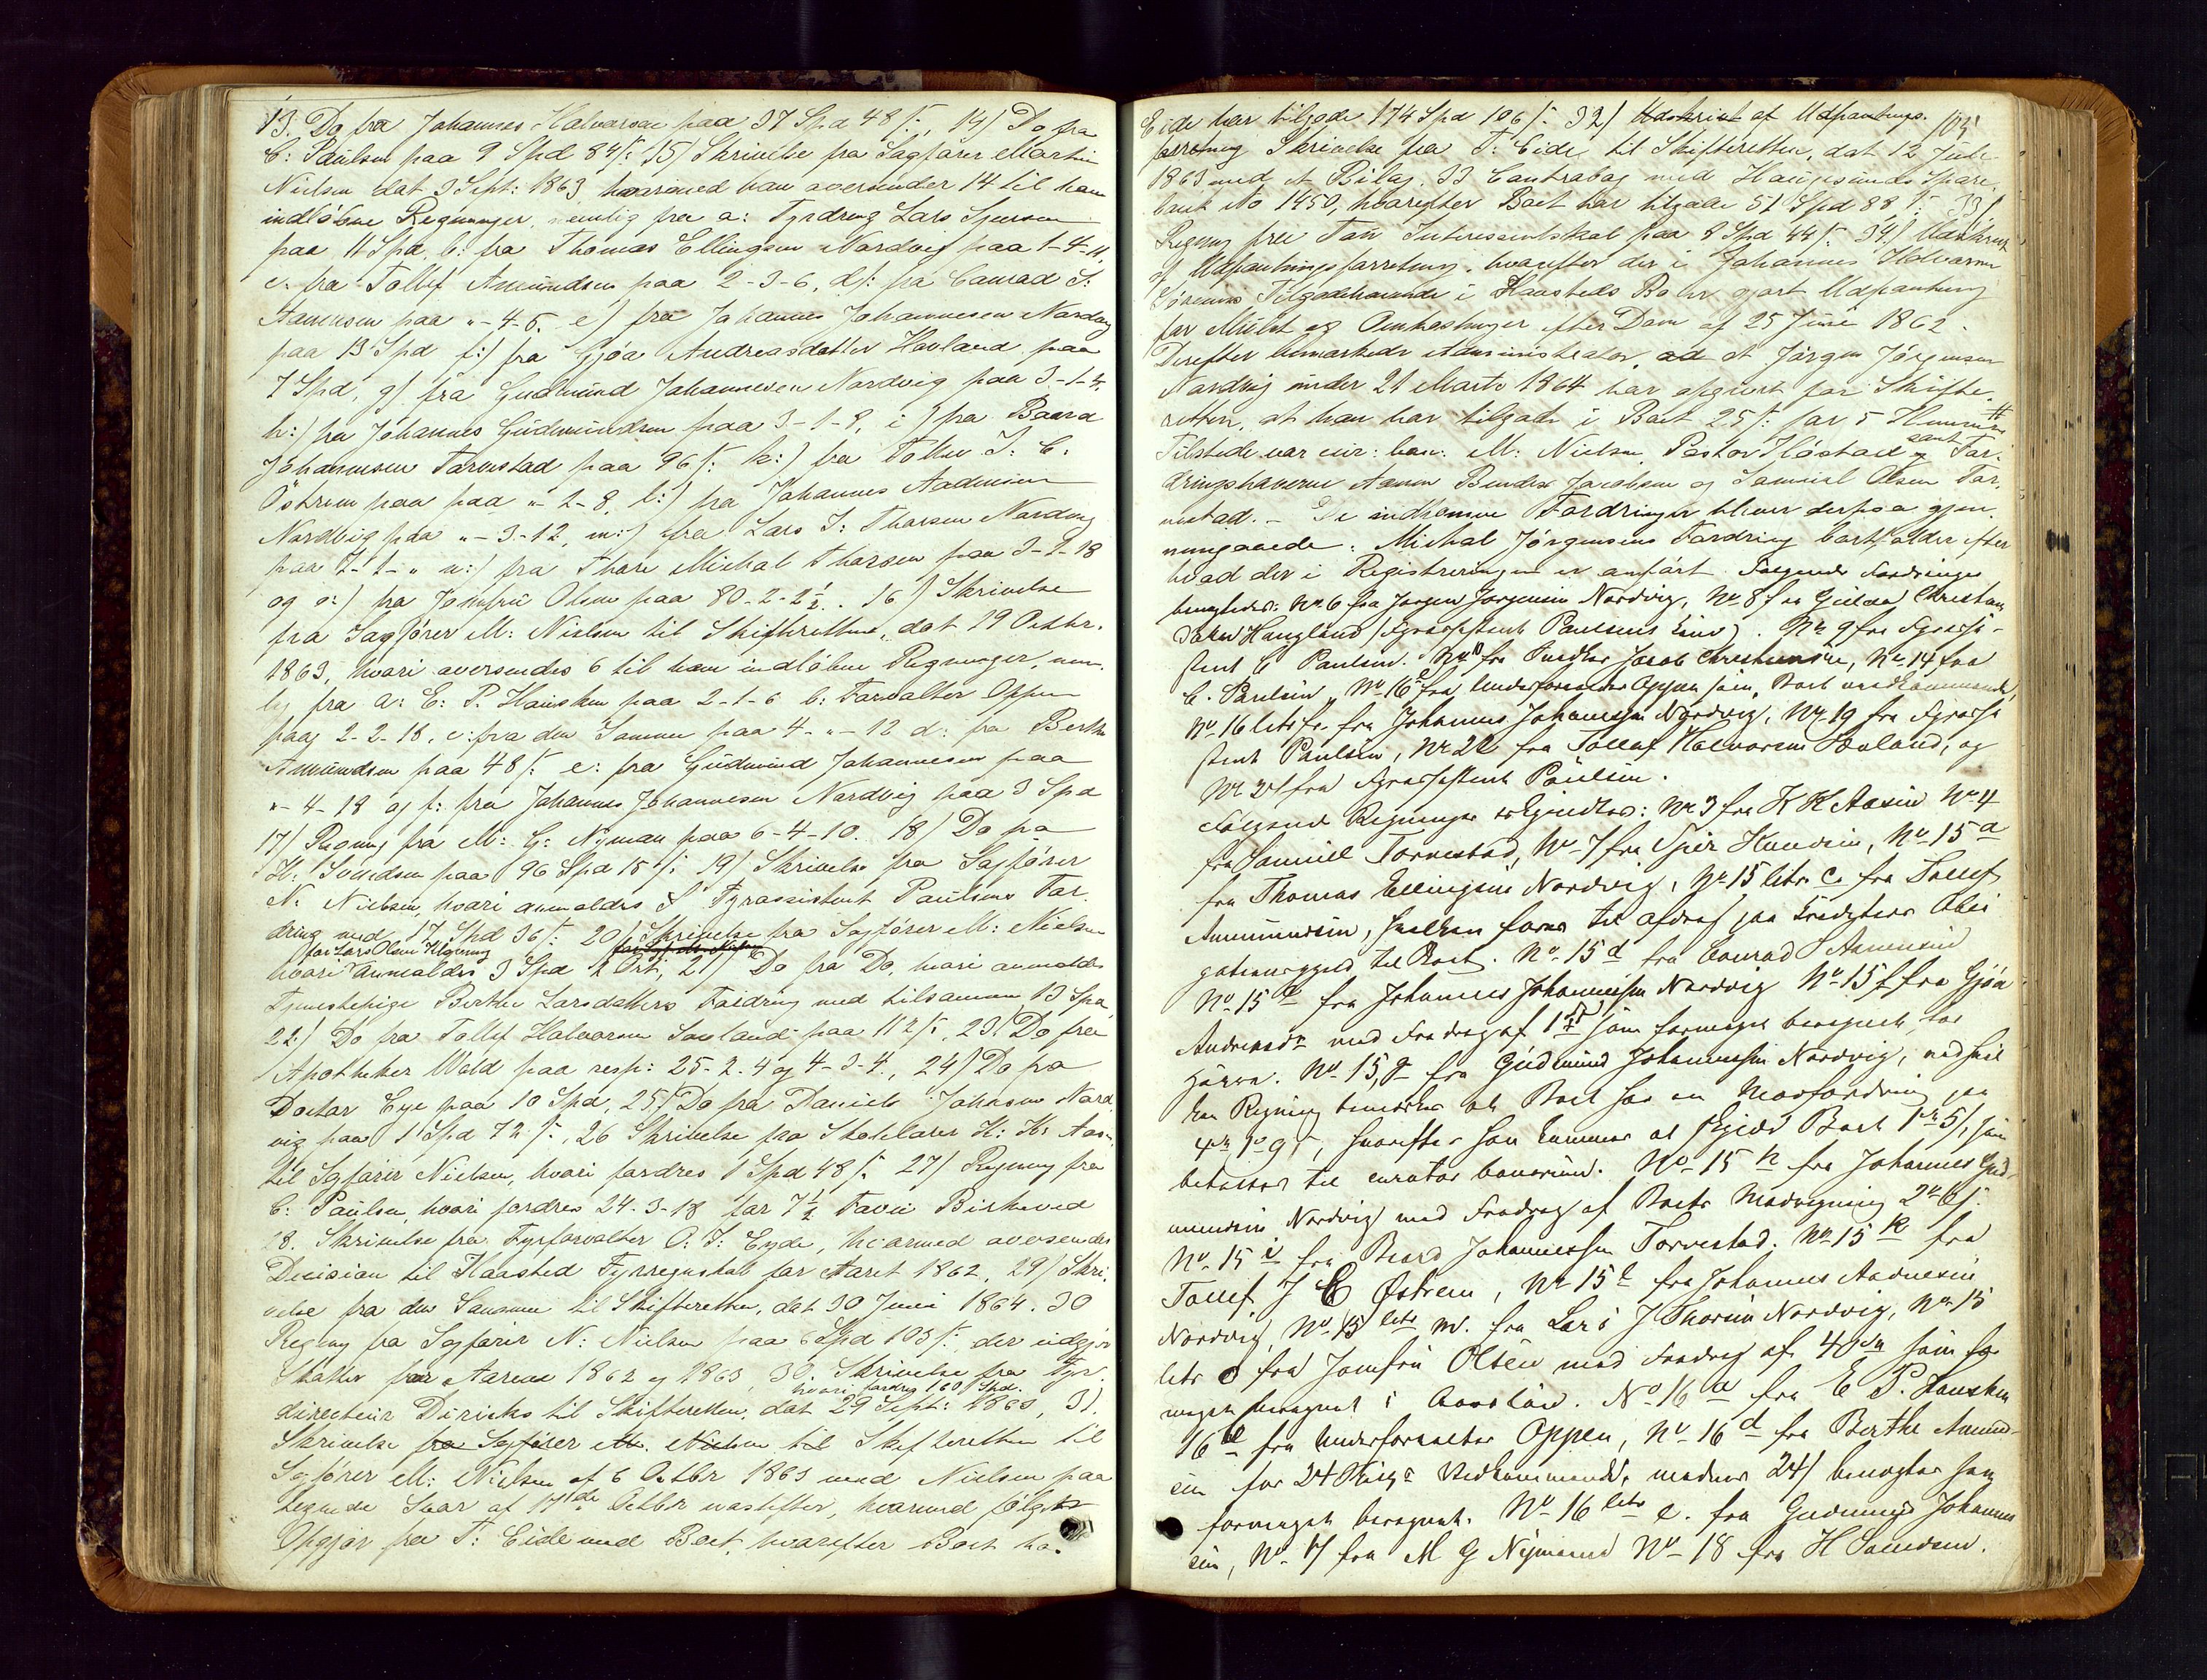 13. Do fra Johannes Halvorsen paa 37 Spd 48 ſ:, 14) Do fra
C: Paulsen paa 9 Spd 84 ſ: 15) Skrivelse fra Sagfører Martin
Nielsen dat 3 Sept: 1863, hvorimed han oversender 14 til ham
indløbne Regninger, nemlig fra a: Fyrdreng Lars Sjursen
paa 11 Spd, b: fra Thomas Ellingsen Nordvig paa 1-4-11,
c. fra Tollef Amundsen paa 2-3-6, d): fra Conrad S:
Aamensen paa "-4-5. e) fra Johannes Johannesen Nordvig
paa 13 Spd f:) fra Gjöa Andreasdatter Hovland paa
7 Spd, g) fra Gudmund Johannesen Nordvig paa 3-1-4.
h:) fra Johannes Gudmundsen paa 3-1-8, i) fra Baard
Johannesen Torvestad paa 96 ſ: k:) fra Tollev J: C.
Östrem paa paa "-2-8, l:) fra Johannes Aadnesen
Nordvig paa "-3-12, m:) fra Lars J: Thorsen Nordvig
paa 7-1-" n:) fra Thore Michal Thorsen paa 3-2-18
og o:) fra Jomfru Olsen paa 80-2-2½. 16) Skrivelse
fra Sagfører M: Nielsen til Skifteretten, dat 19 Octbr.
1863, hvori oversendes 6 til ham indløbne Regninger, nem-
lig fra a: E. P. Hausken paa 2-1-6 b: Forvalter Oppen
paa 2-2-18, c: fra den Samme paa 4-"-12 d: fra Berthe
Amundsen paa 48 ſ: e: fra Gudmund Johannesen paa
"-4-18 og f: fra Johannes Johannesen Nordvig paa 3 Spd
17) Regning fra M: G: Nyman paa 6-4-10. 18) Do fra
H: Svendsen paa 96 Spd 15 ſ: 19) Skrivelse fra Sagfører
N. Nielsen, hvori anmeldes Fyrassistent Paulsens For-
dring med 17 Spd 36 ſ: 20) Skrivelse fra Sagfører M: Nielsen
for Lars Olsen
hvori anmeldes 3 Spd 2 Ort, 21) Do fra Do, hvori anmeldes
Tjenestepige Berthe Larsdatters Fordring med tilsammen 13 Spd,
22) Do fra Tollef Halvorsen Sovland paa 112 ſ:, 23) Do fra
Apotheker Wold paa resp: 25-2-4 og 4-3-4, 24) Do fra
Doctor Eye paa 10 Spd, 25) Do fra Daniel Johnsen Nord-
vig paa 1 Spd 72 ſ:, 26 Skrivelse fra Skolelærer K: K: Aas-
til Sagfører Nielsen, hvori fordres 1 Spd 48 ſ: 27) Regning fra
C: Paulsen, hvori fordres 24-3-18 for 7½ Favn Birkeved
28. Skrivelse fra Fyrforvalter O. T: Eyde, hvormed oversendes
Decision til Haasted Fyrregnskab for Aaret 1862, 29) Skri-
velse fra den Samme til Skifteretten, dat 30 Juni 1864. 30
Regning fra Sagfører N: Nielsen paa 6 Spd 103 ſ:, der udgjør
Skatter for Aarene 1862 og 1863, 30. Skrivelse fra Fyr-
hvori fordres 160 Spd.
directeur Diricks til Skifteretten, dat 29 Sept: 1863, 31.
Skrivelse fra Sagfører M. Nielsen til Skifteretten til
Sagfører M: Nielsen af 6 Octbr 1863 med Nielsen paa
tegnede Svar af 17de Octbr næstefter, hvormed fölgte
Opgjør fra T: Eide med Boet, hvorefter Boet ha-
103
Eide har tilgode 174 Spd 106 ſ: 32) Udskrivt af Udpantnings-
forretning Skrivelse fra T: Eide til Skifteretten, dat 12 Juli
1863 med et Bilag. 33 Contrabog med Haugesunds Spare-
bank No 1450, hvorefter Boet har tilgode 51 Spd 88 ſ: 33)
Regning fra Tan Interessentskab paa 8 Spd 44 ſ: 34.) Udskrivt
af Udpantningsforretning, hvorefter der i Johannes Halvorsen
Tilgodehavende i Haasteds Bo er gjort Udpantning
for Mulct og Omkostninger efter Dom af 25 Juni 1862.
Derefter bemærkede Administrator, at Jörgen Jörgensen
Nordvig under 21 Marts 1864 har opgivet for Skifte-
retten, at han har tilgode i Boet 25 ſ: for 5 Hummere
Tilstede var cur: bon: M: Nielsen, Pastor Flöstad samt For-
dringshaverne Aamen Bendix Jacobsen og Samuel Olsen Tor-
vestad. – De indkomne Fordringer bleve derpaa gjen-
nemgaaede. Michal Jörgensens Fordring bortfalder efter
hvad der i Registreringen er anført. Følgende Fordringer
benegtedes: No 6 fra Jørgen Jørgensen Nordvig, No 8 fra Gurine Christens-
datter Haugland (Fyrassistent Paulsens Enke). No 9 fra Fyrassi-
stent C Paulsen. No 10 fra Snedker Jacob Christensen, No 14 fra
C. Paulsen, No 16 b fra Underforvalter Oppen som Boet uvedkommende,
No 16 litr f. fra Johannes Johannessen Nordvig, No 19 fra Fyrassi-
stent Paulsen, No 22 fra Tollef Halvorsen Sovland, og
No 27 fra Fyrassistent Paulsen.
Følgende Regninger erkjendtes: No 3 fra K K Aasen No 4
fra Samuel Torvestad, No 7 fra Peder Knudsen, No 15 a
fra Thomas Ellingsen Nordvig, No 15 litr c fra Tollef
Amundsen, hvilken fører til Afdrag paa Fredtgtens Obli-
gationsgjeld til Boet. No 15 d fra Conrad Aamensen
No 15 e fra Johannes Johannessen Nordvig No 15 f fra Gjöa
Andreasdr med Fradrag af 1 som formeget beregnet for
No 15 g fra Gudmund Johannessen Nordvig, ved hvil-
ken Regning bemærkes at Boet har en Modfordring paa
hvorefter han kommer at skylde Boet som
betales til curator bonorum. No 15 h fra Johannes Gud-
mundsen Nordvig med Fradrag af Boets Modregning
No 15 i fra Baard Johannessen Torvestad, No 15 k fra
Tollef J C Østrem, No 15 l fra Johannes Aadnesen
Nordvig, No 15 litr m. fra Lars J Thorsen Nordvig, No 15
litr o fra Jomfru Olsen med Fradrag af som for
meget beregnet i No 16 a fra E P. Hausken
16 c fra Underforvalter Oppen, No 16 d fra Berthe Amund-
sen for 24 vedkommende, medens 24 benegtes som
formeget beregnet. No 16 litr e. fra Gudmund Johannes-
sen, No 17 fra M G Nymand No 18 fra H Svendsen.